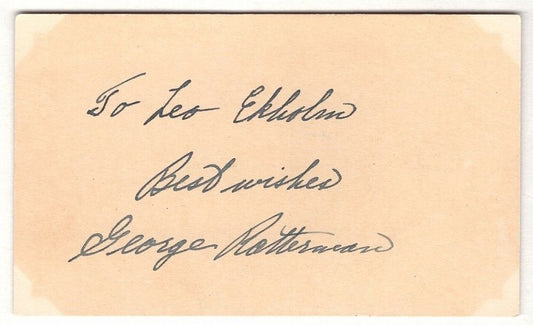 To Leo Ekholm
Best wishes
George Ratterman